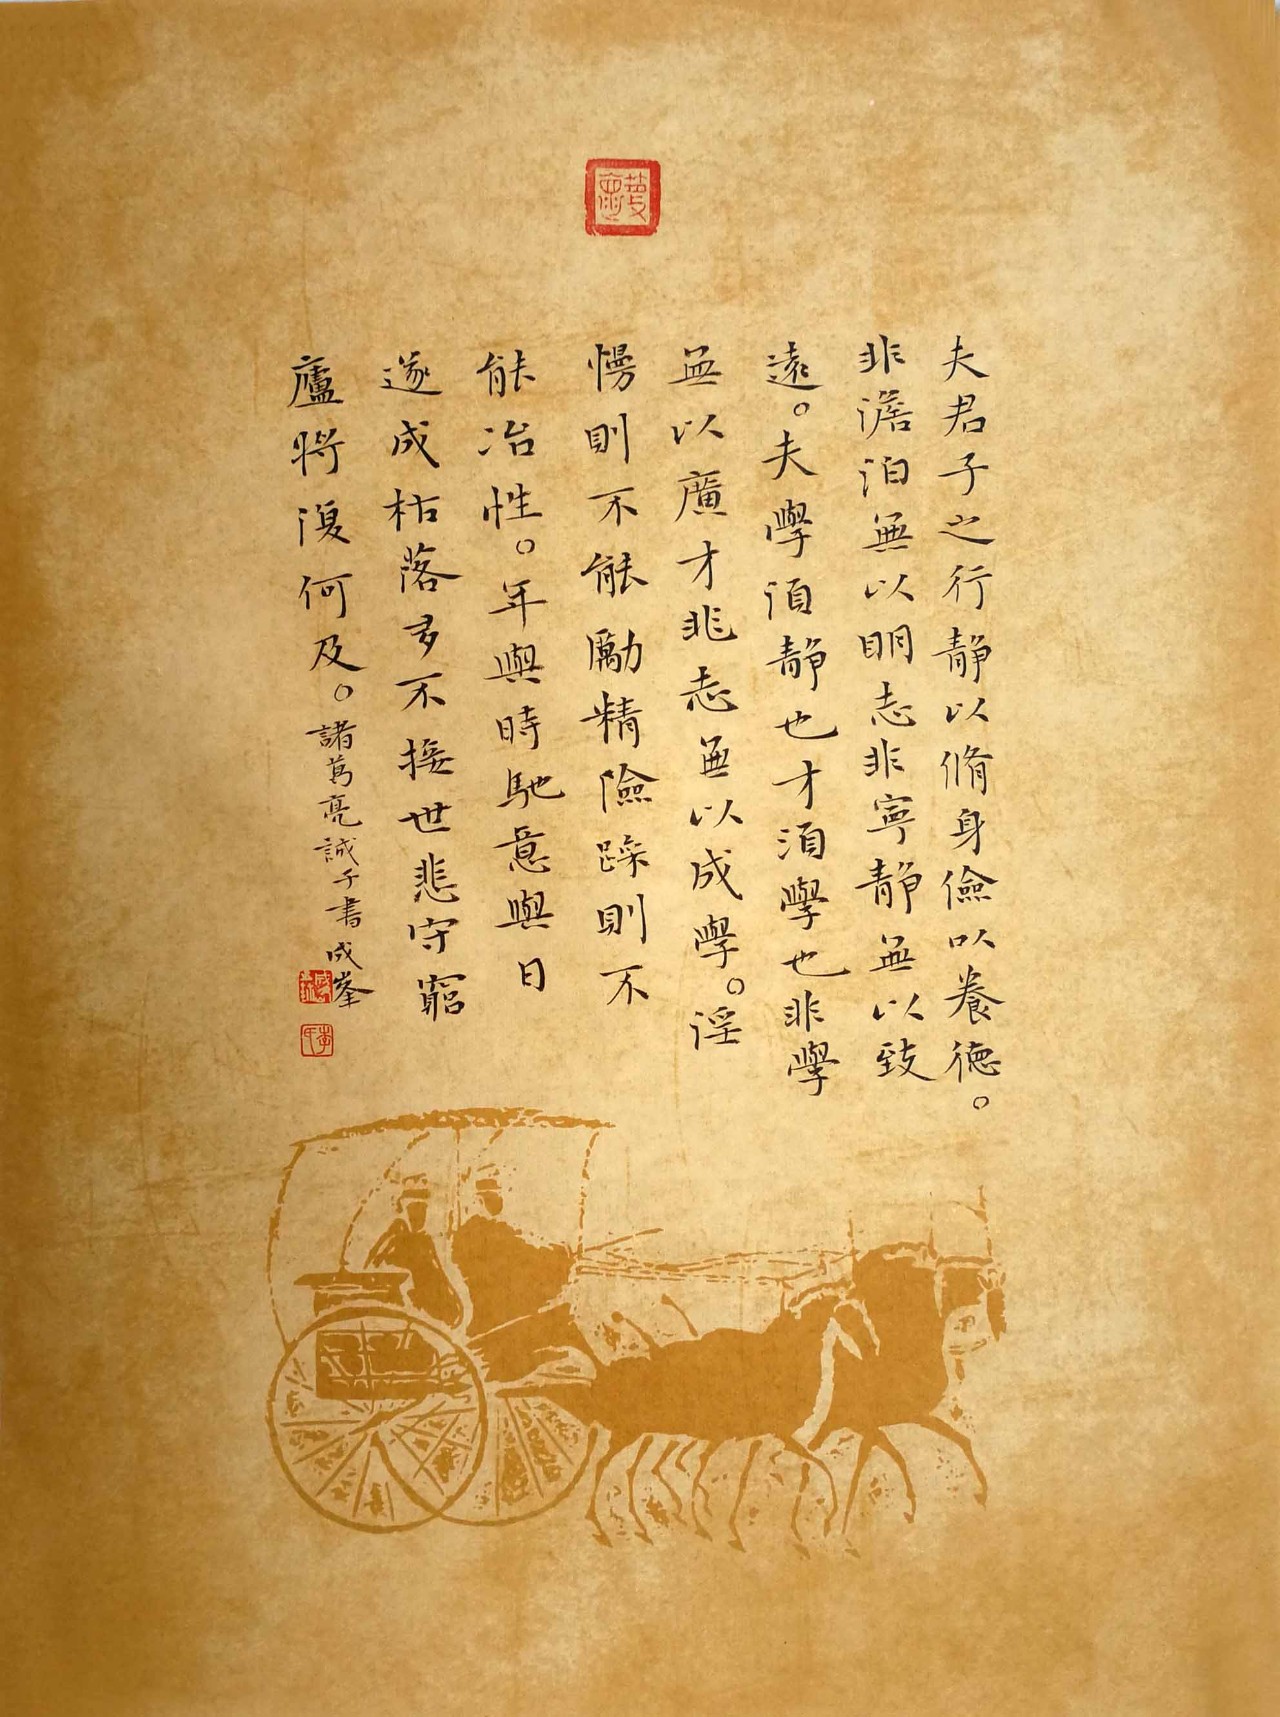 夫君子之行静以脩身儉以養德。
非澹泊無以明志非寧静無以致
遠。夫學須静也才須學也非學
無以廣才非志無以成學。淫
慢則不能勵精險躁則不
能冶性。年與時馳意與日
遂成枯落多不接世悲守窮
廬將復何及。諸葛亮誡子書 成峯